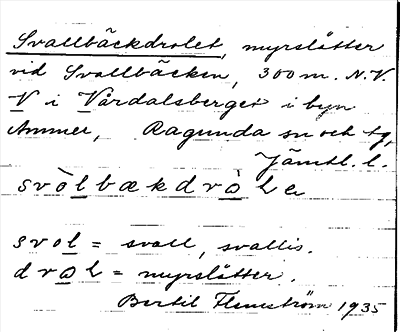 Svallbäckdrolet, myrslåtter
vid Svallbäcken, 300 m. N.V.
V i Vårdalsberget i byn
Ammer, Ragunda sn och tg,
Jämtl. l.
svòlbækdvòlɐ
svol = svall, svallis.
dvol = myrslåtter.
Bertil Flemström 1935